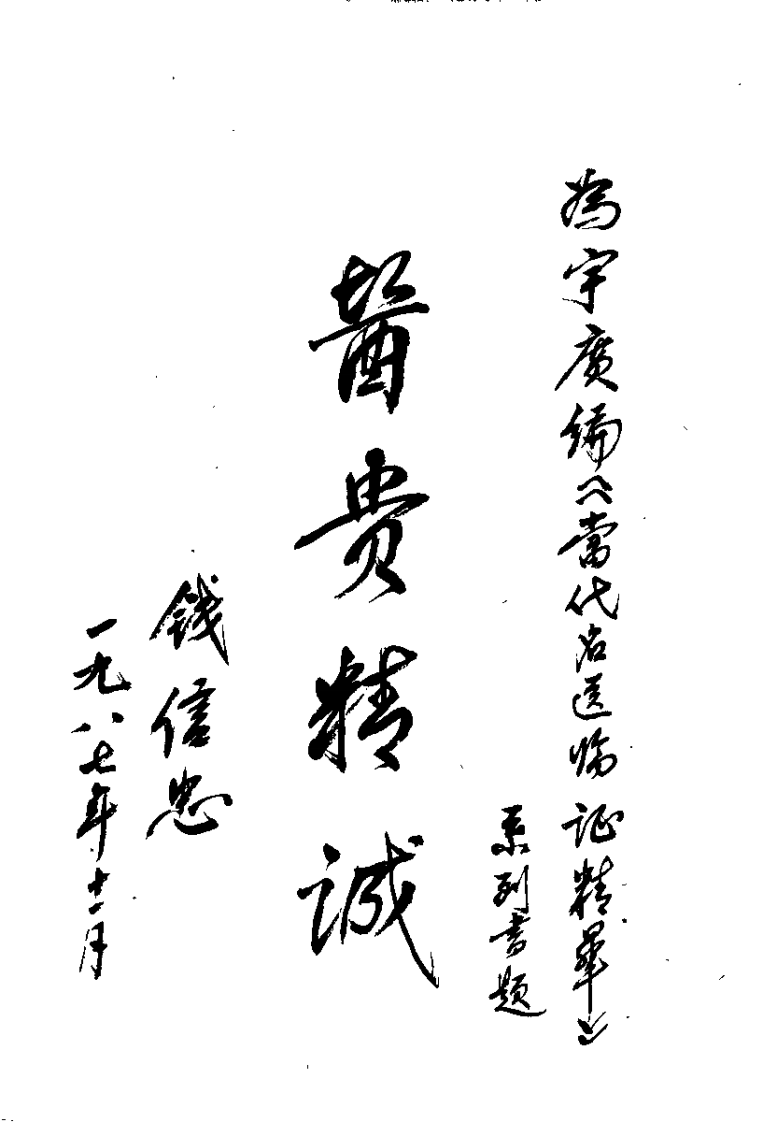 為宇廣編《當代名医临证精華》
系列書題
醫贵精诚
錢信忠
一九八七年十二月